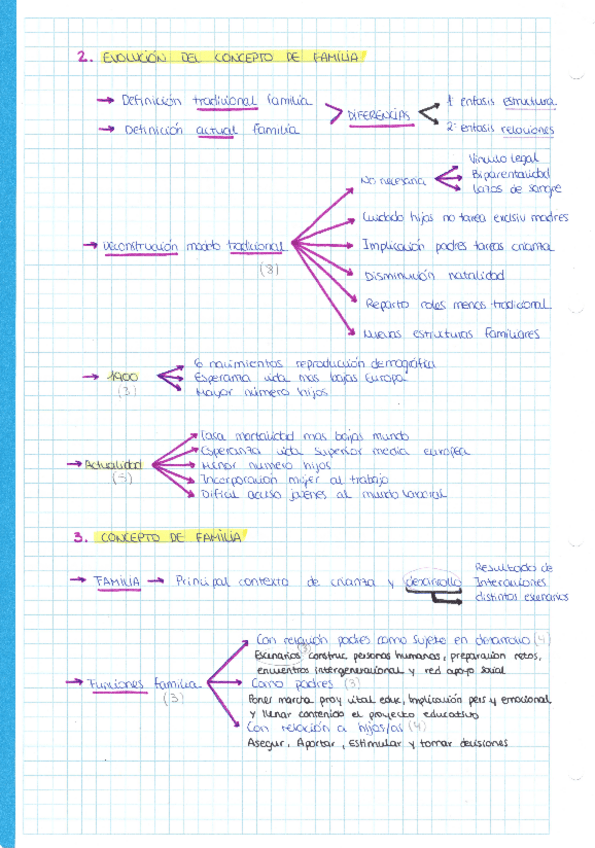 2. EVOLUCIÓN DEL CONCEPTO DE FAMILIA
→ Definición tradicional familia
→ Definición actual familia
DIFERENCIAS
1: enfasis estructura
2: enfasis relaciones
→ Deconstrucción modelo tradicional
(8)
No necesaria
Vínculo legal
Biparentalidad
Lazos de sangre
Cuidado hijos no tarea exclusiv madres
Implicación padres tareas crianza
Disminución natalidad
Reparto roles menos tradicional
Nuevas estructuras familiares
→ 1900
(3)
6 nacimientos reproducción demográfica
Esperanza vida mas bajas Europa
Mayor número hijos
→ Actualidad
(5)
Tasa mortalidad mas bajas mundo
Esperanza vida superior media europea
Menor número hijos
Incorporación mujer al trabajo
Dificil acceso jovenes al mundo laboral
3. CONCEPTO DE FAMILIA
→ FAMILIA → Principal contexto de crianza y desarrollo
Resultado de
Interacciones
distintos escenarios
→ Funciones familia
(3)
Con relación padres como sujeto en desarrollo (4)
Escenarios (3) construc personas humanas, preparación retos,
encuentros intergeneracional y red apoyo social
Como padres (3)
Poner marcha proy vital educ, Implicación pers y emocional
y llenar contenido el proyecto educativo
Con relación a hijos/as (4)
Asegur, Aportar, Estimular y tomar decisiones